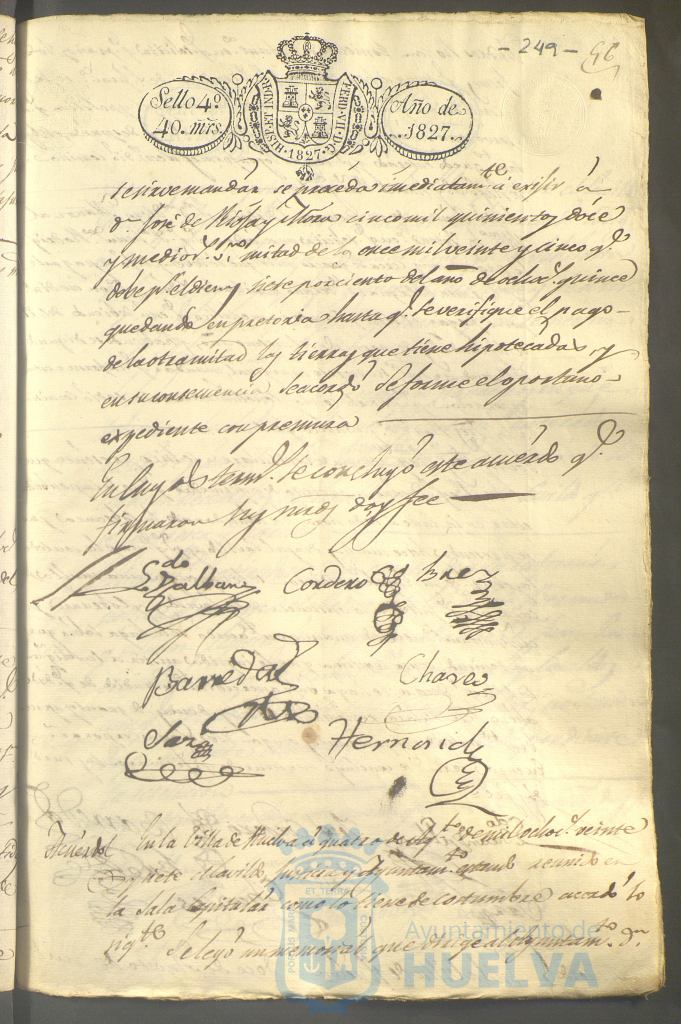 - 249 - 96
Sello 4º 40. mrs.
HISP. ET IND. R. FERD. VII. D. G. 1827
Año de 1827.
se sirve mandár se proceda immediatam.te á exijir á
dn José de Mora cinco mil quinientos doce
y medio r.s v.n mitad de los once mil veinte y cinco q.e
debe p.r el diez y siete por ciento del año de ochoc.s quince
quedando en pretoria hasta q.e se verifique el pago
de la otra mitad las tierras que tiene hipotecadas y
en su consecuencia se acordó se forme el oportuno
expediente con premura
En cuyos term.s se concluyó este acuérdo q.e
firmaron sus mrds doy fee
L.do Balbuena Cordero
Barreda Chaves
Sanz Hernand.z
Acuérdo En la Villa de Huelva á quatro de Ag.to de mil ochoc.s veinte
y siete el Cavildo, Justicia y Ayuntam.to estando reunido en
la Sala Capitulár como lo tiene de costumbre acordó lo
sig.te Se leyó un memorial que dirige al Ayuntam.to dn
Ayuntamiento de
HUELVA